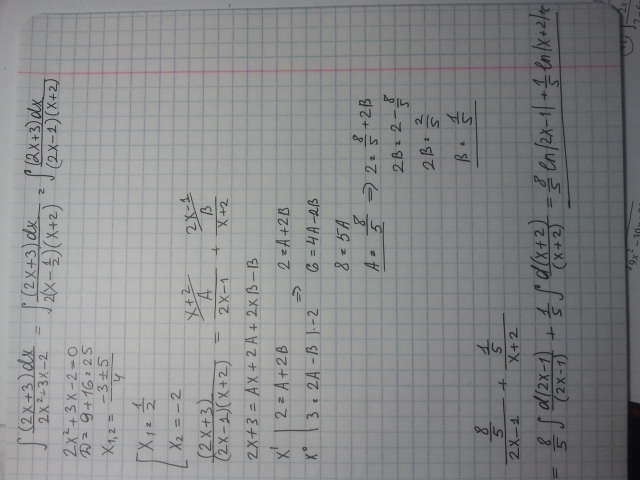 ∫ (2x+3)dx / (2x²+3x-2) = ∫ (2x+3)dx / 2(x-1/2)(x+2) = ∫ (2x+3)dx / (2x-1)(x+2)
2x²+3x-2=0
D=9+16=25
x1,2 = (-3±5)/4
[ x1 = 1/2
x2 = -2
(2x+3) / (2x-1)(x+2) = x+2/ A/(2x-1) + 2x-1/ B/(x+2)
2x+3 = Ax+2A+2xB-B
x¹ | 2=A+2B 2=A+2B
x⁰ | 3=2A-B |·2 ⇒ 6=4A-2B
8=5A
A = 8/5 ⇒ 2 = 8/5 + 2B
2B = 2 - 8/5
2B = 2/5
B = 1/5
(8/5)/(2x-1) + (1/5)/(x+2)
= 8/5 ∫ d(2x-1)/(2x-1) + 1/5 ∫ d(x+2)/(x+2) = 8/5 ln|2x-1| + 1/5 ln|x+2| +